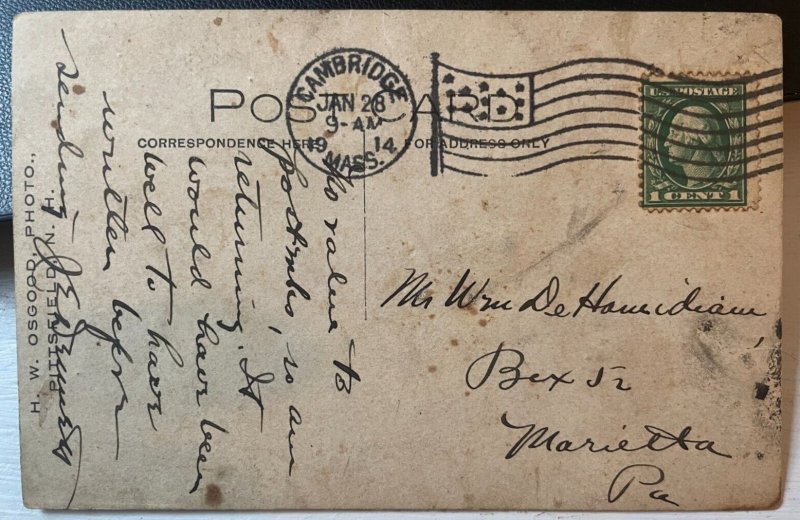 POST CARD
CORRESPONDENCE HERE
FOR ADDRESS ONLY
CAMBRIDGE
JAN 28
9-AM
1914
MASS.
U.S. POSTAGE
1 CENT 1
No value to
postmks, so am
returning. It
would have been
well to have
written before
sending
Mr Wm De
Box 52
Marietta
Pa
H. W. OSGOOD, PHOTO.,
PITTSFIELD, N. H.